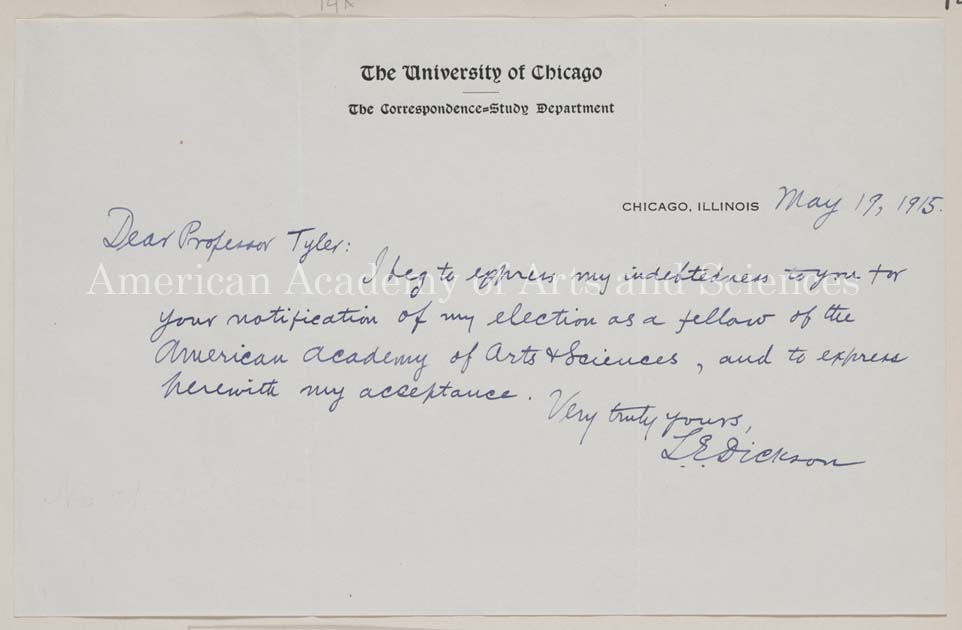 The University of Chicago
The Correspondence=Study Department
CHICAGO, ILLINOIS May 19, 1915.
Dear Professor Tyler:
I beg to express my indebtedness to you for
American Academy of Arts and Sciences
your notification of my election as a fellow of the
American Academy of Arts & Sciences, and to express
herewith my acceptance.
Very truly yours,
L.E. Dickson